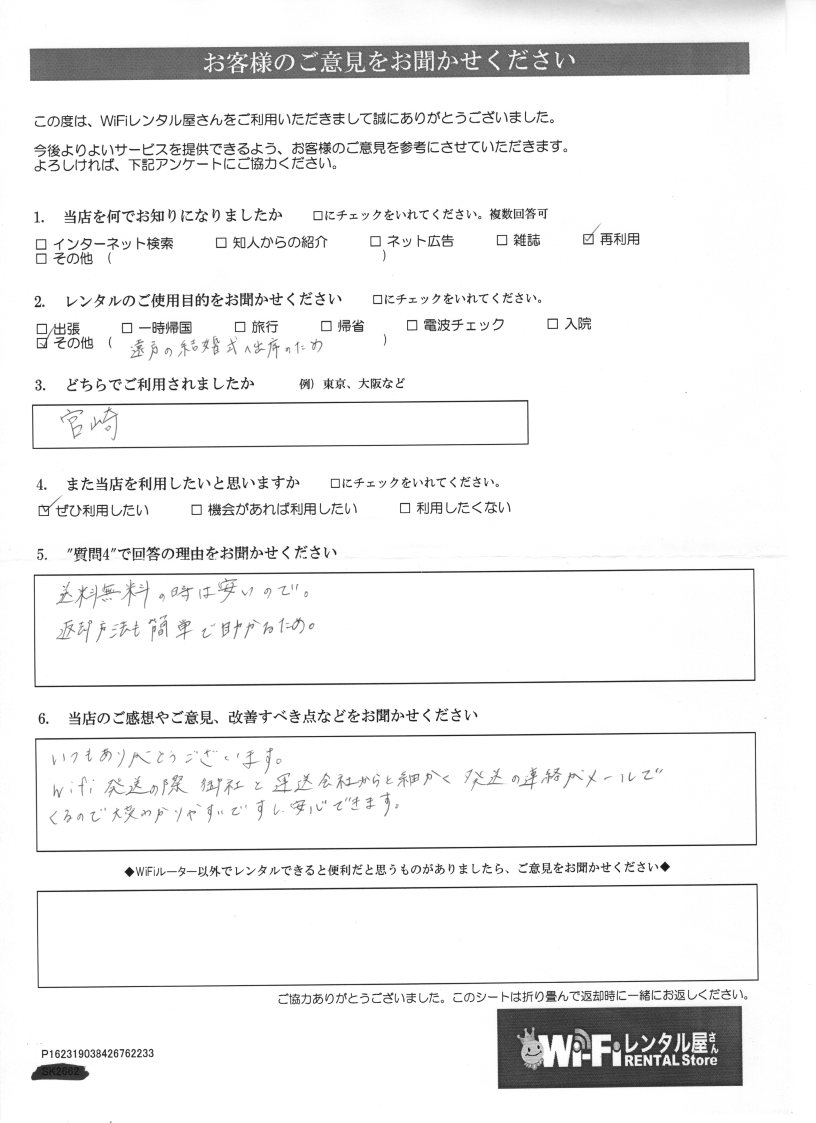 お客様のご意見をお聞かせください
この度は、WiFiレンタル屋さんをご利用いただきまして誠にありがとうございました。
今後よりよいサービスを提供できるよう、お客様のご意見を参考にさせていただきます。
よろしければ、下記アンケートにご協力ください。
1. 当店を何でお知りになりましたか □にチェックをいれてください。複数回答可
□ インターネット検索 □ 知人からの紹介 □ ネット広告 □ 雑誌 ☑ 再利用
□ その他 ( )
2. レンタルのご使用目的をお聞かせください □にチェックをいれてください。
□ 出張 □ 一時帰国 □ 旅行 □ 帰省 □ 電波チェック □ 入院
☑ その他 ( 遠方の結婚式へ出席のため )
3. どちらでご利用されましたか 例）東京、大阪など
宮崎
4. また当店を利用したいと思いますか □にチェックをいれてください。
☑ ぜひ利用したい □ 機会があれば利用したい □ 利用したくない
5. "質問4"で回答の理由をお聞かせください
送料無料の時は安いので。
返却方法も簡単で助かるため。
6. 当店のご感想やご意見、改善すべき点などをお聞かせください
いつもありがとうございます。
wifi発送の際 御社と運送会社からと細かく発送の連絡がメールで
くるので大変わかりやすいですし、安心できます。
◆WiFiルーター以外でレンタルできると便利だと思うものがありましたら、ご意見をお聞かせください◆
ご協力ありがとうございました。このシートは折り畳んで返却時に一緒にお返しください。
P162319038426762233
SK2662
Wi-Fiレンタル屋さん
RENTAL Store